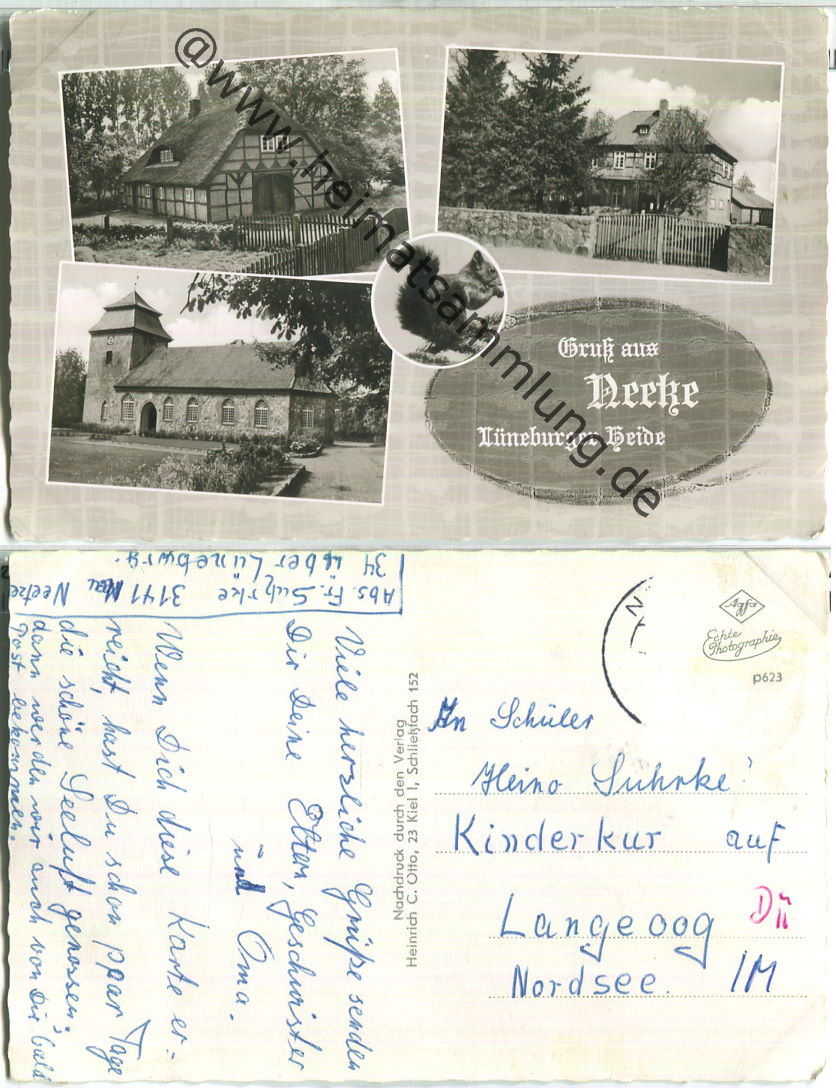 @www.heimatsammlung.de
Gruß aus
Neetze
Lüneburger Heide
Abs. Fr. Suhrke 3141 Neetze
34 über Lüneburg.
Viele herzliche Grüße senden
Dir Deine Eltern, Geschwister
und Oma.
Wenn Dich diese Karte er=
reicht, hast Du schon paar Tage
die schöne Seeluft genossen,
dann werden wir auch von Dir bald
Post bekommen.
Nachdruck durch den Verlag
Heinrich C. Otto, 23 Kiel 1, Schließfach 152
Agfa
Echte
Photographie
p623
An Schüler
Heino Suhrke
Kinderkur auf
Langeoog
Dü
Nordsee. IM